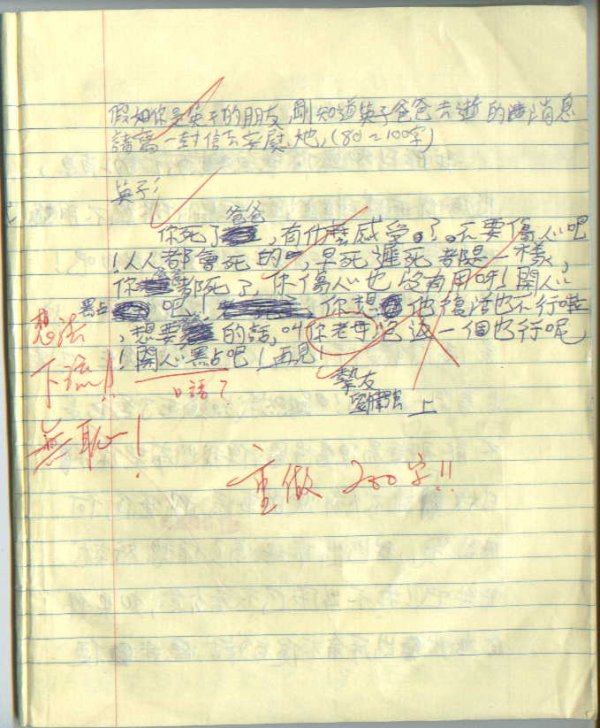 假如你是英子的朋友,剛知道英子爸爸去逝的消息
請寫一封信去安慰她,(80~100字)
英子:
你死了爸爸,有什麼感受。了。不要傷心吧
!人人都會死的,早死遲死都是一樣,
你 都死了,你傷心也沒有用呀!開心
點吧, 你想 他復活也不行啦
,想要 的話,叫你老母 一個也行呢
!開心點吧!再見!
摯友
劉 上
想法
下流!!
口語?
無恥!
重做 200字!!